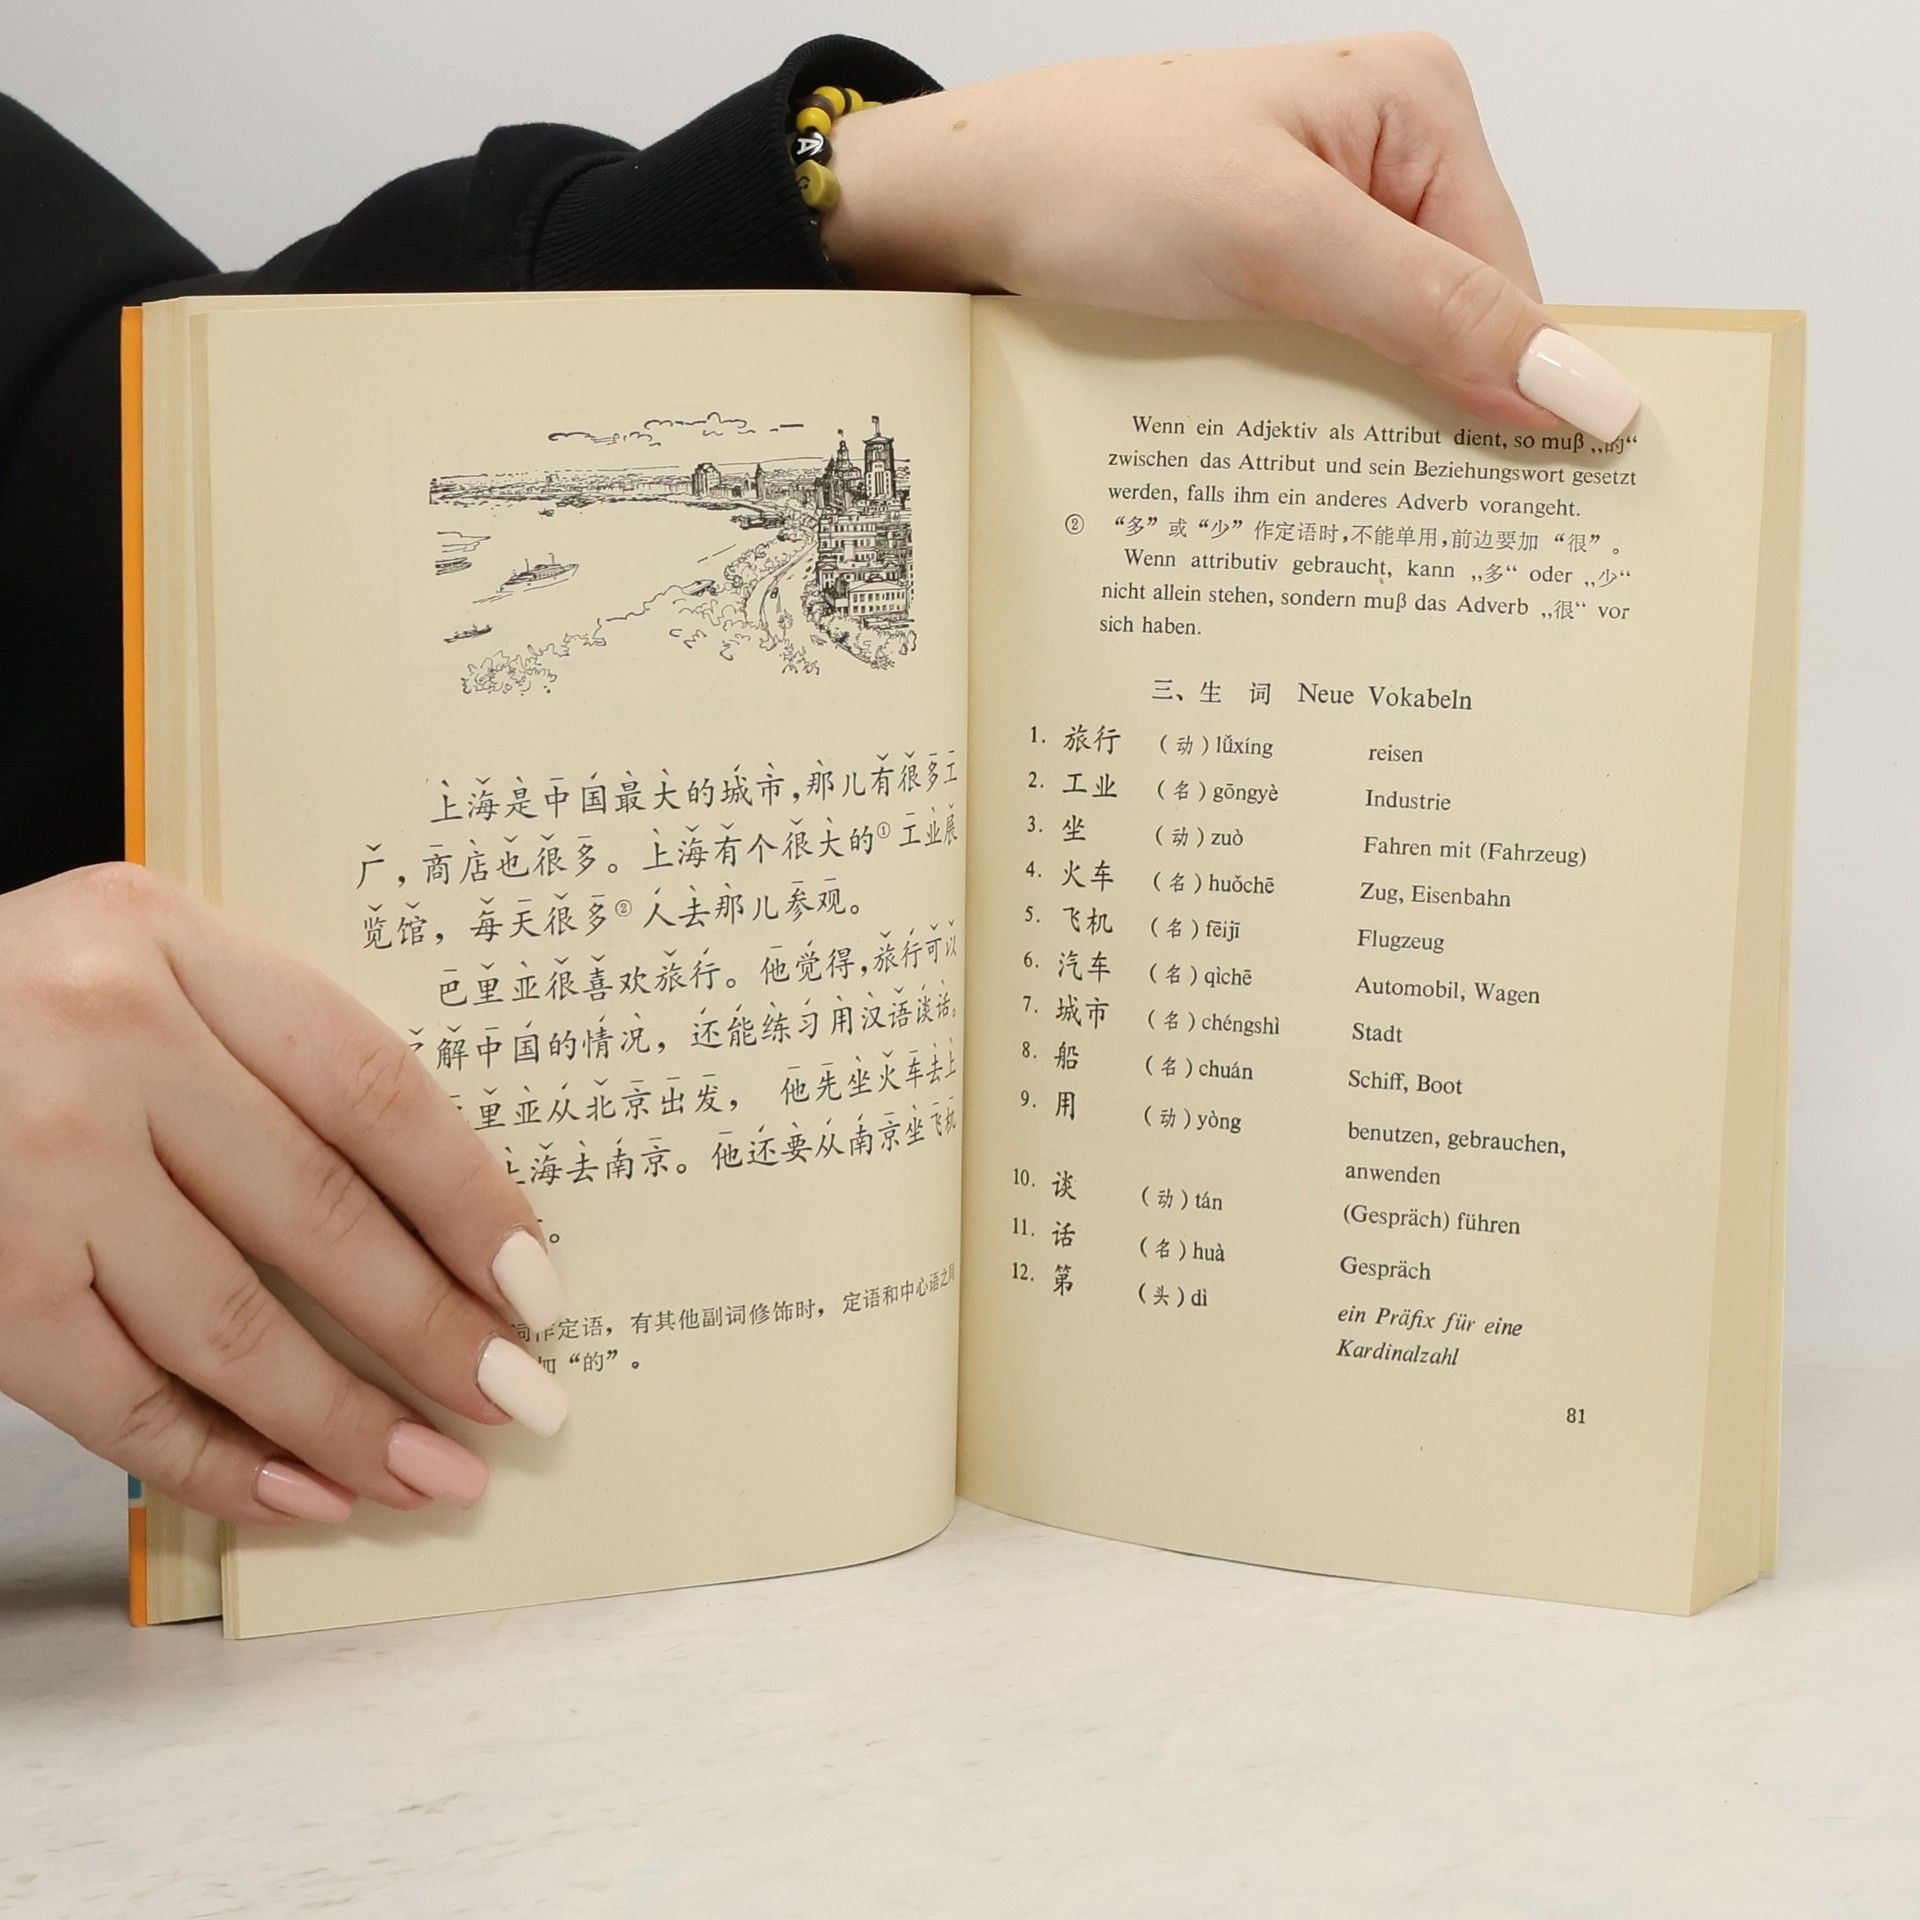 上海是中国最大的城市，那儿有很多工
厂，商店也很多。上海有个很大的①工业展
览馆，每天很多②人去那儿参观。
巴里亚很喜欢旅行。他觉得，旅行可以
解中国的情况，还能练习用汉语谈话。
里亚从北京出发，他先坐火车去上
海去南京。他还要从南京坐飞机
。
作定语，有其他副词修饰时，定语和中心语之间
“的”。
Wenn ein Adjektiv als Attribut dient, so muß „的“
zwischen das Attribut und sein Beziehungswort gesetzt
werden, falls ihm ein anderes Adverb vorangeht.
② “多”或“少”作定语时，不能单用，前边要加“很”。
Wenn attributiv gebraucht, kann „多“ oder „少“
nicht allein stehen, sondern muß das Adverb „很“ vor
sich haben.
三、生 词 Neue Vokabeln
1. 旅行 （动）lǚxíng reisen
2. 工业 （名）gōngyè Industrie
3. 坐 （动）zuò Fahren mit (Fahrzeug)
4. 火车 （名）huǒchē Zug, Eisenbahn
5. 飞机 （名）fēijī Flugzeug
6. 汽车 （名）qìchē Automobil, Wagen
7. 城市 （名）chéngshì Stadt
8. 船 （名）chuán Schiff, Boot
9. 用 （动）yòng benutzen, gebrauchen,
anwenden
10. 谈 （动）tán (Gespräch) führen
11. 话 （名）huà Gespräch
12. 第 （头）dì ein Präfix für eine
Kardinalzahl
81